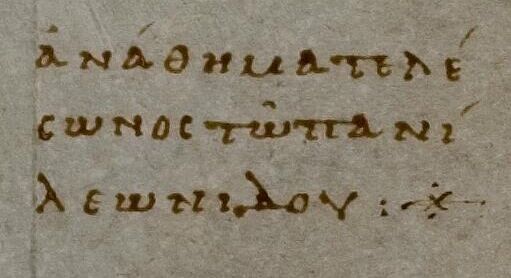 ἀνάθηματελέ
σωνος τῶπανί
λεωνιδου :